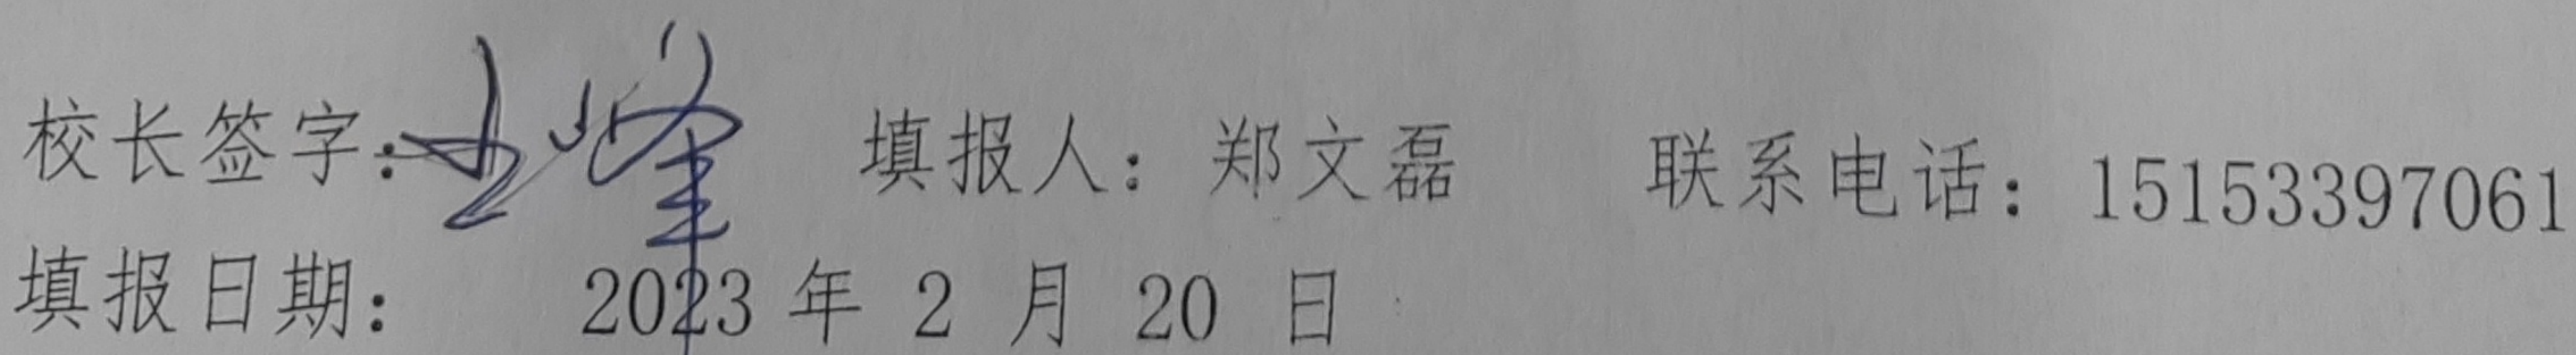 校长签字: 填报人: 郑文磊 联系电话: 15153397061
填报日期: 2023 年 2 月 20 日